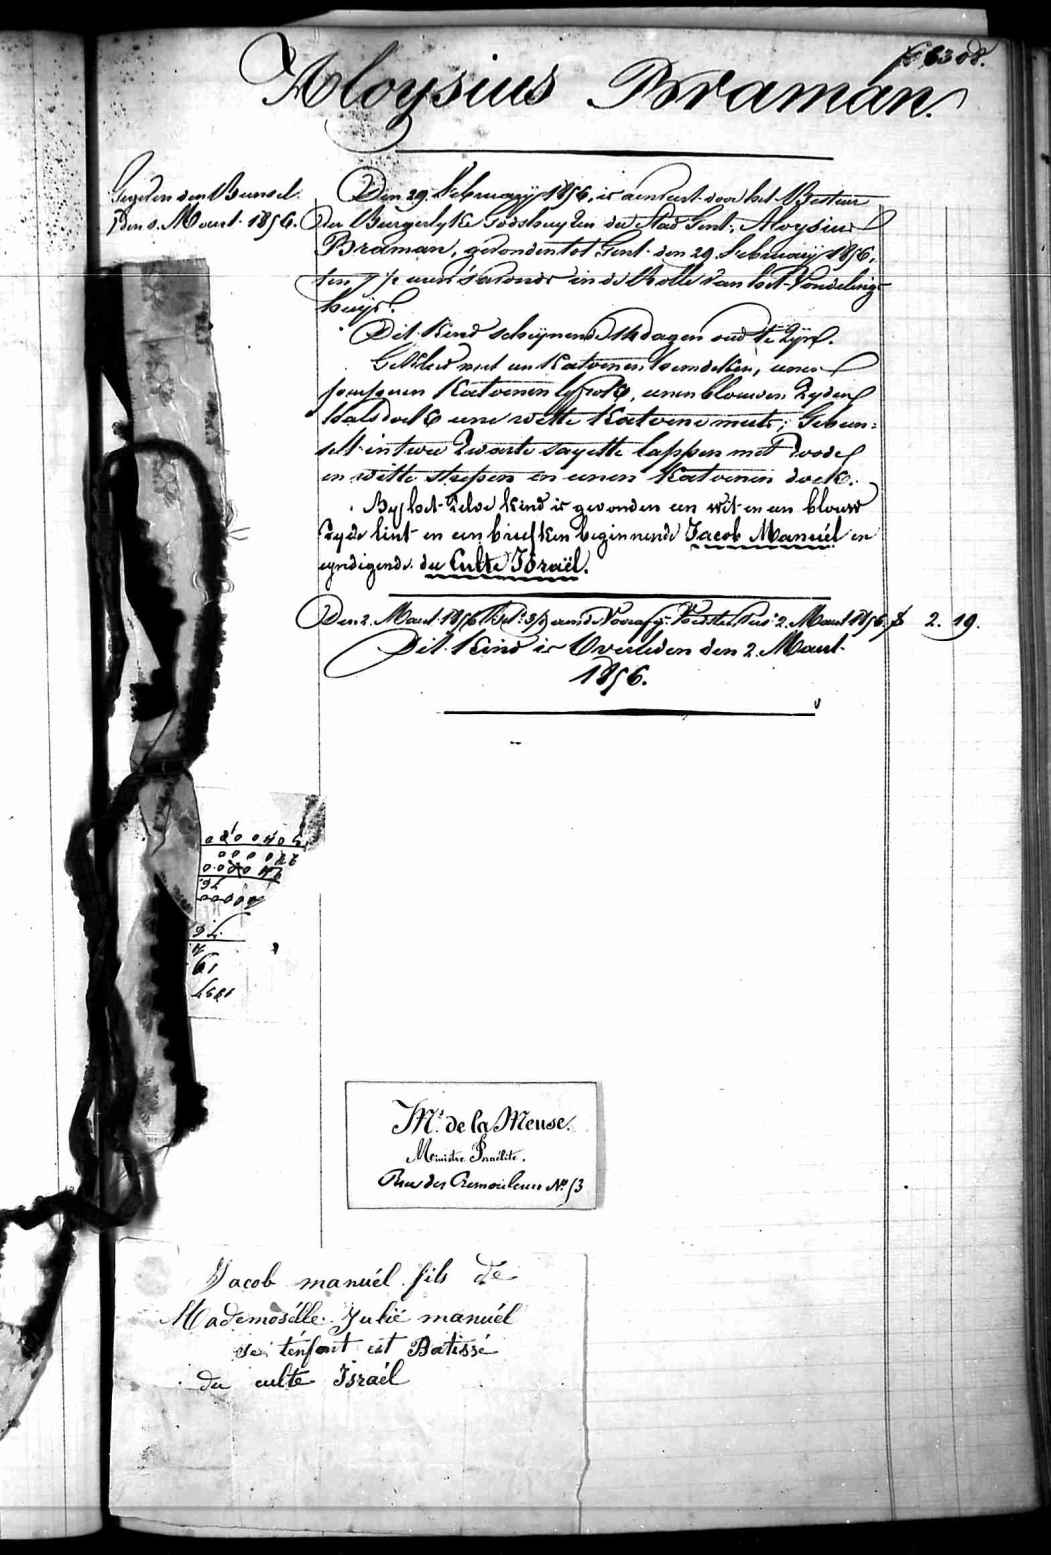 6308.
Aloysius Braman.
den Bussel.
den 8. Maert 1856.
Den 29 February 1856, is aenveert door het Bestier
der Burgerlyke Godshuyzen der Stad Gent, Aloysius
Braman, gevonden tot Gent den 29 February 1856,
ten 7 ½ uren s'avonds in de Rolle van het Vondeling-
huys.
Dit kind schynende 14 dagen oud te zyn.
Gekleed met een katoenen hemdeken, eenen
katoenen lyfrok, eenen blouwen zyden
halsdoek eene witte katoene muts; Gebun-
selt in twee zwarte sayette lappen met roode
en witte strepen en eenen katoenen doek.
By het zelve kind is gevonden een wit en een blouw
zyde lint en een briefken beginnende Jacob Manuél en
eyndigende du Culte Israël.
Den 2. Maert 1856 2. Maert 1856 2. 19.
Dit kind is Overleden den 2 Maert
1856.
Mr. de la Meuse.
Ministre Israélite.
Rue des N° 53
Jacob manuél fils de
Mademosélle Julié manuél
se ténfant est Batissé
du culte Israél